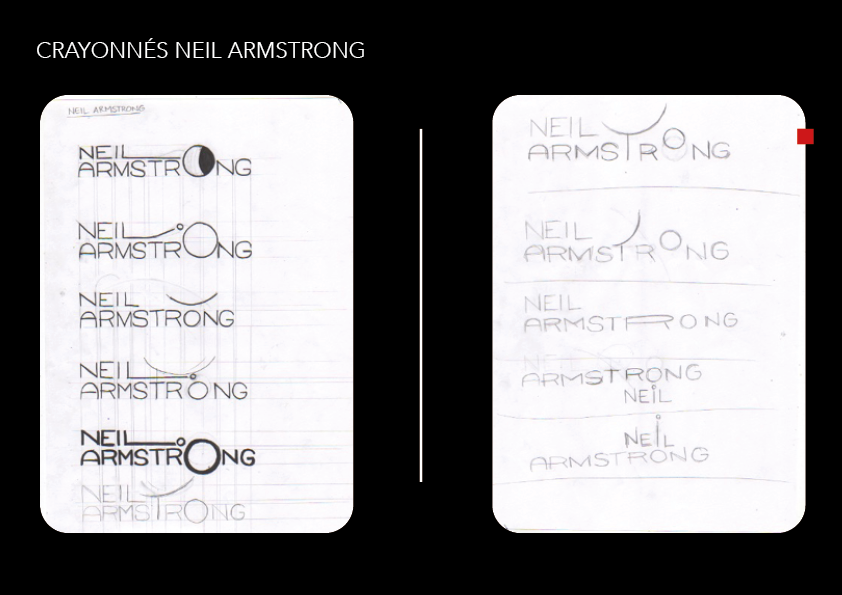 CRAYONNÉS NEIL ARMSTRONG
NEIL ARMSTRONG
NEIL
ARMSTRONG
NEIL
ARMSTRONG
NEIL
ARMSTRONG
NEIL
ARMSTRONG
NEIL
ARMSTRONG
NEIL
ARMSTRONG
NEIL
ARMSTRONG
NEIL
ARMSTRONG
NEIL
ARMSTRONG
ARMSTRONG
NEIL
NEIL
ARMSTRONG